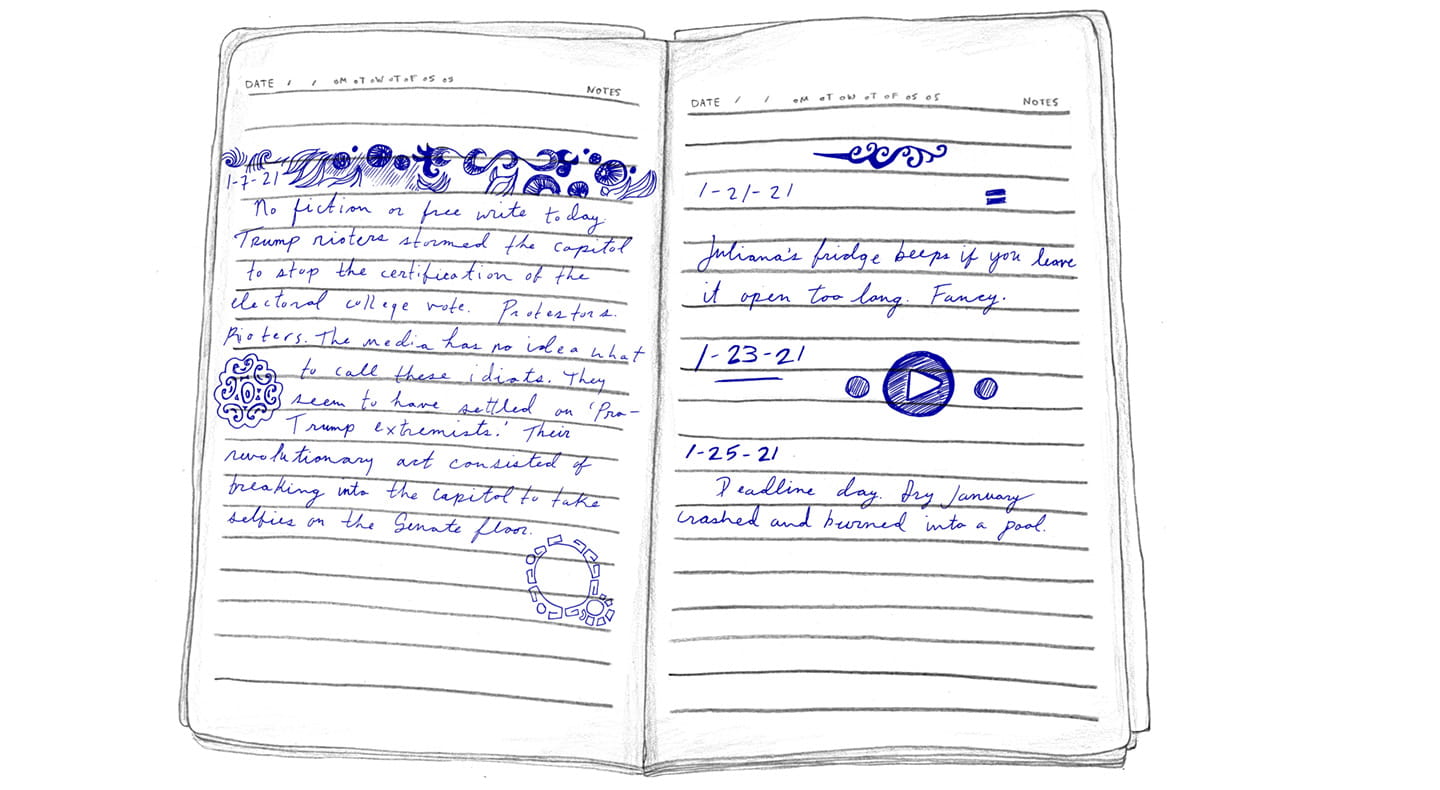 DATE / / oM oT oW oT oF oS oS NOTES
1-7-21
No fiction or free write today.
Trump rioters stormed the capitol
to stop the certification of the
electoral college vote. Protestors.
Rioters. The media has no idea what
to call these idiots. They
seem to have settled on 'Pro-
Trump extremists.' Their
revolutionary act consisted of
breaking into the capitol to take
selfies on the Senate floor.
DATE / / oM oT oW oT oF oS oS NOTES
1-21-21
Juliana's fridge beeps if you leave
it open too long. Fancy.
1-23-21
1-25-21
Deadline day. Dry January
crashed and burned into a pool.